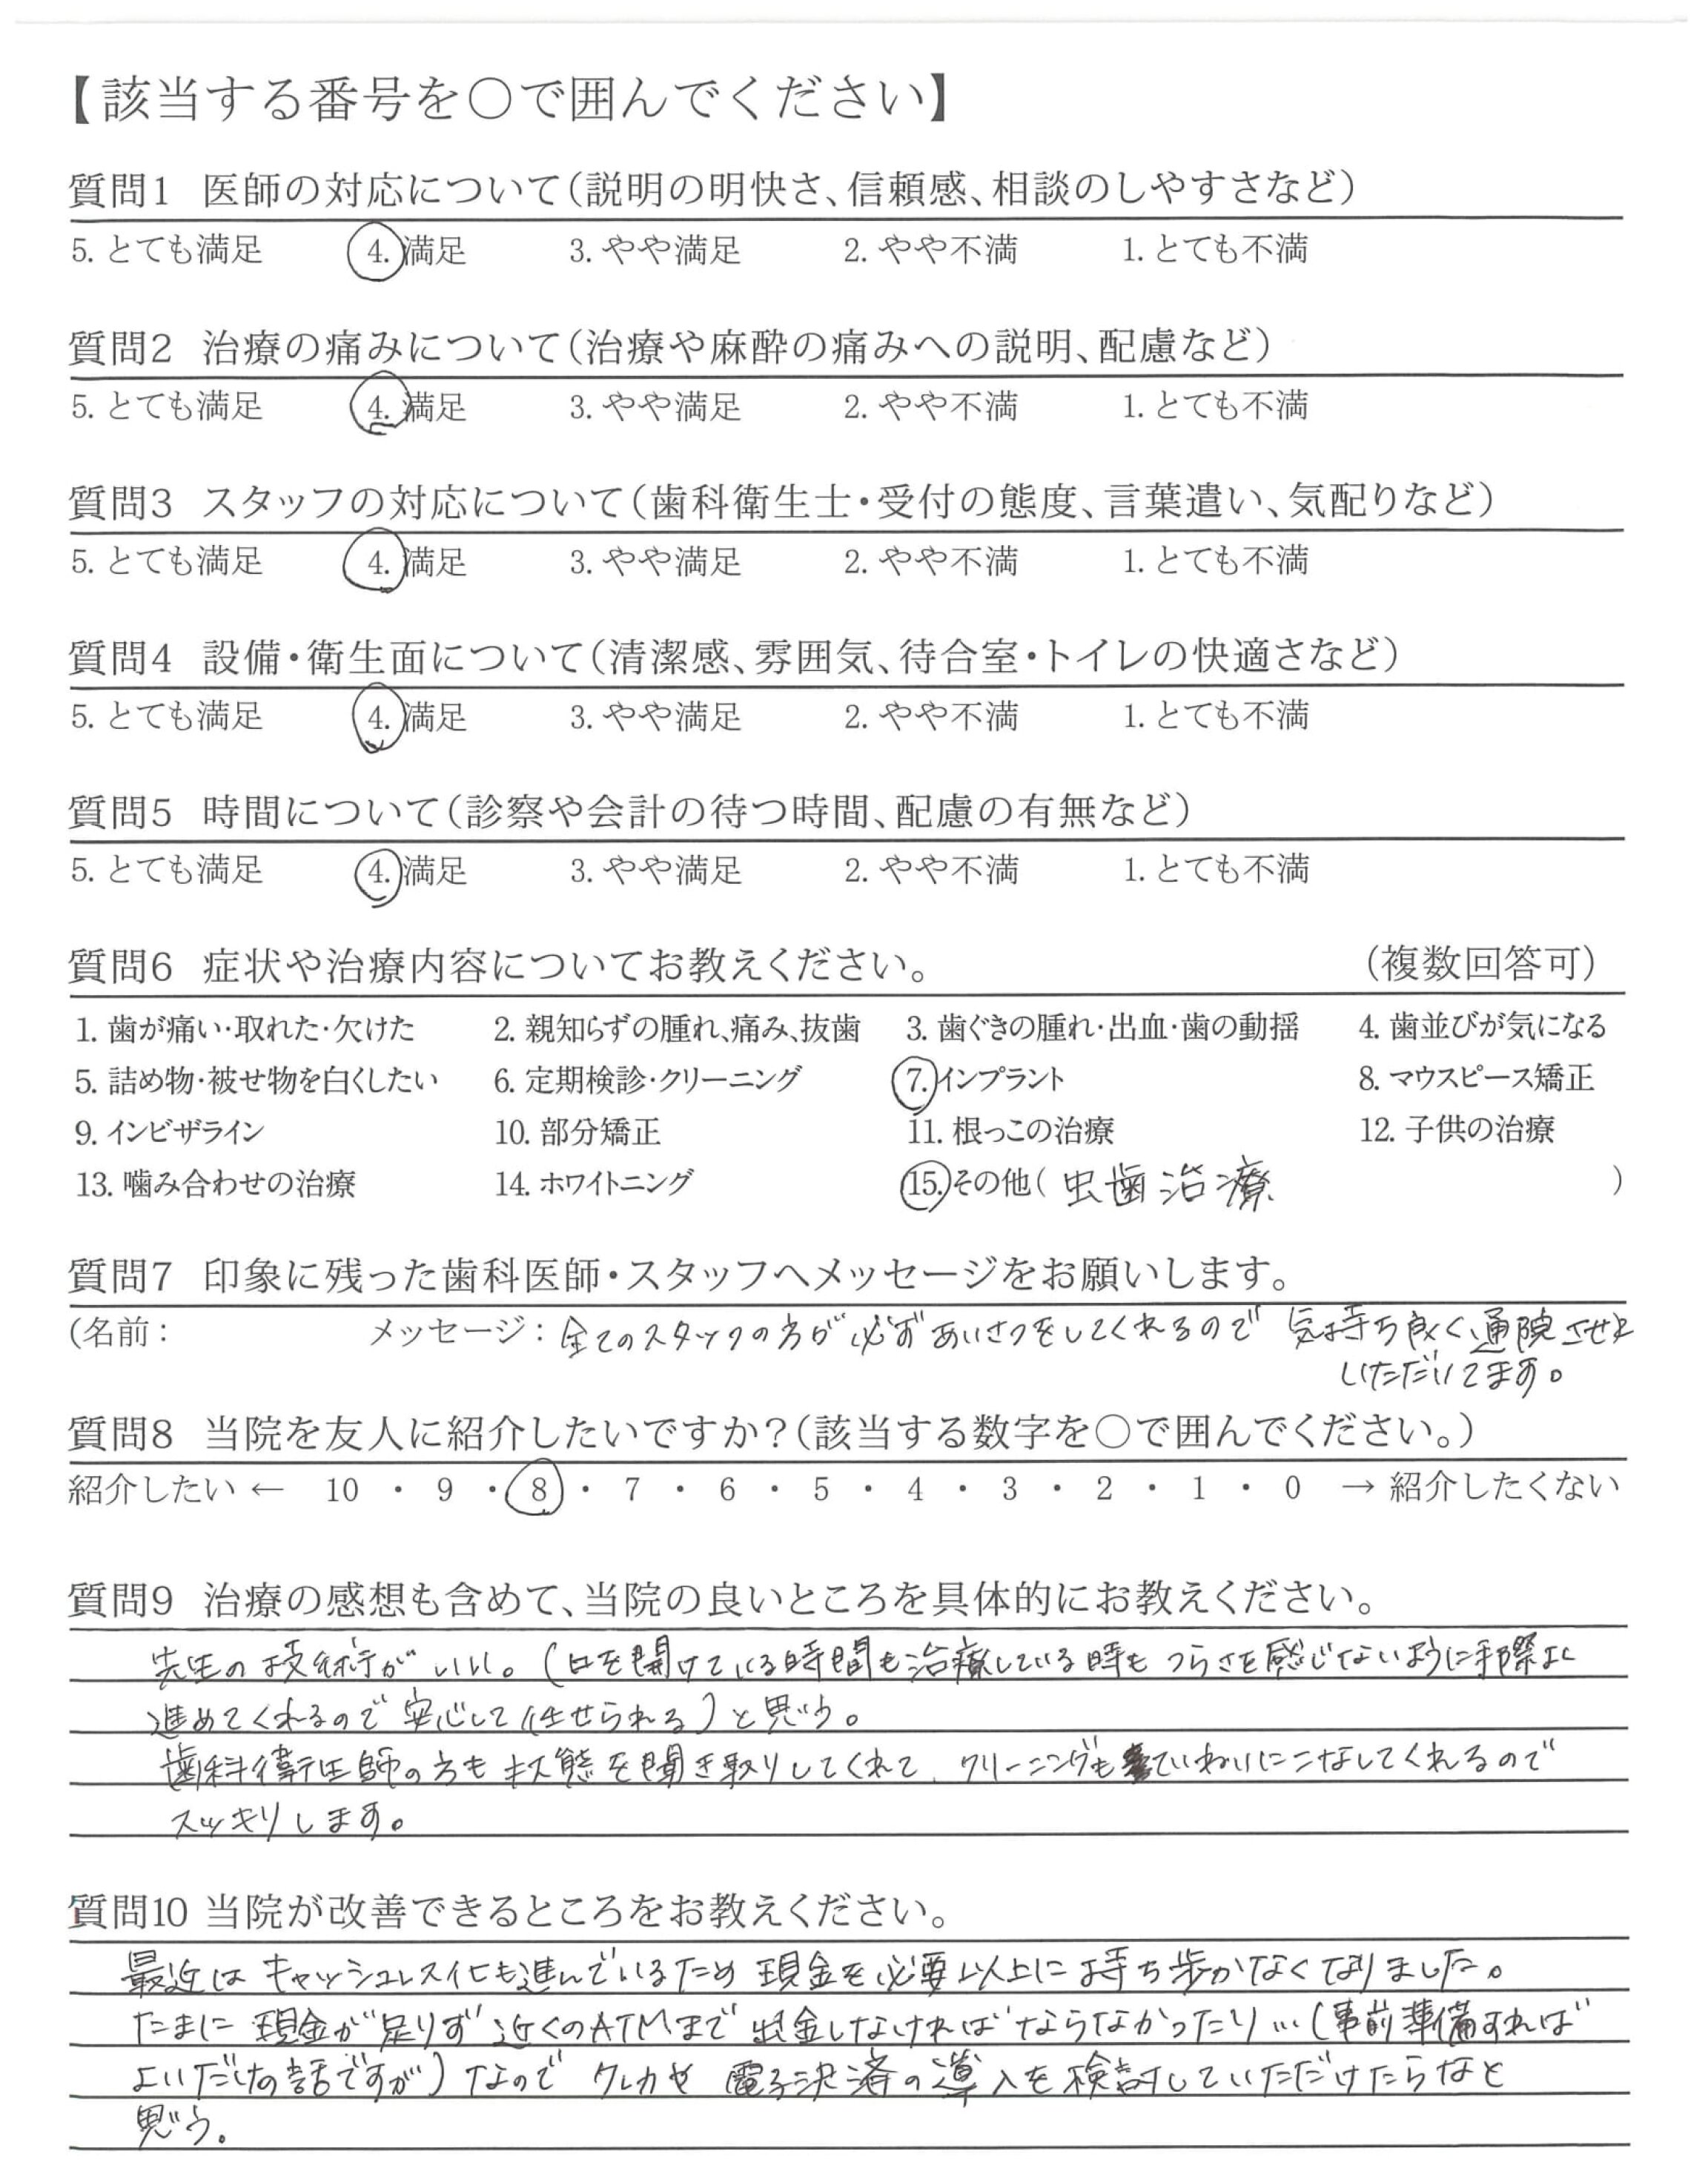 【該当する番号を○で囲んでください】
質問1 医師の対応について(説明の明快さ、信頼感、相談のしやすさなど)
5. とても満足 4. 満足 3. やや満足 2. やや不満 1. とても不満
質問2 治療の痛みについて(治療や麻酔の痛みへの説明、配慮など)
5. とても満足 4. 満足 3. やや満足 2. やや不満 1. とても不満
質問3 スタッフの対応について(歯科衛生士・受付の態度、言葉遣い、気配りなど)
5. とても満足 4. 満足 3. やや満足 2. やや不満 1. とても不満
質問4 設備・衛生面について(清潔感、雰囲気、待合室・トイレの快適さなど)
5. とても満足 4. 満足 3. やや満足 2. やや不満 1. とても不満
質問5 時間について(診察や会計の待つ時間、配慮の有無など)
5. とても満足 4. 満足 3. やや満足 2. やや不満 1. とても不満
質問6 症状や治療内容についてお教えください。 (複数回答可)
1. 歯が痛い・取れた・欠けた 2. 親知らずの腫れ、痛み、抜歯 3. 歯ぐきの腫れ・出血・歯の動揺 4. 歯並びが気になる
5. 詰め物・被せ物を白くしたい 6. 定期検診・クリーニング 7. インプラント 8. マウスピース矯正
9. インビザライン 10. 部分矯正 11. 根っこの治療 12. 子供の治療
13. 噛み合わせの治療 14. ホワイトニング 15. その他( 虫歯治療 )
質問7 印象に残った歯科医師・スタッフへメッセージをお願いします。
(名前: メッセージ: 全てのスタッフの方が必ずあいさつをしてくれるので 気持ち良く通院させて
いただいてます。
質問8 当院を友人に紹介したいですか?(該当する数字を○で囲んでください。)
紹介したい ← 10 ・ 9 ・ 8 ・ 7 ・ 6 ・ 5 ・ 4 ・ 3 ・ 2 ・ 1 ・ 0 → 紹介したくない
質問9 治療の感想も含めて、当院の良いところを具体的にお教えください。
先生の技術がいい。(口を開けている時間も治療している時もつらさを感じないように手際よく
進めてくれるので安心して任せられる)と思う。
歯科衛生師の方も状態を聞き取りしてくれて、クリーニングもていねいにこなしてくれるので
スッキリします。
質問10 当院が改善できるところをお教えください。
最近はキャッシュレス化も進んでいるため 現金を必要以上に持ち歩かなくなりました。
たまに 現金が足りず 近くのATMまで 出金しなければならなかったり…(事前準備すれば
よいだけの話ですが)なので クレカや 電子決済の導入を検討していただけたらなと
思う。